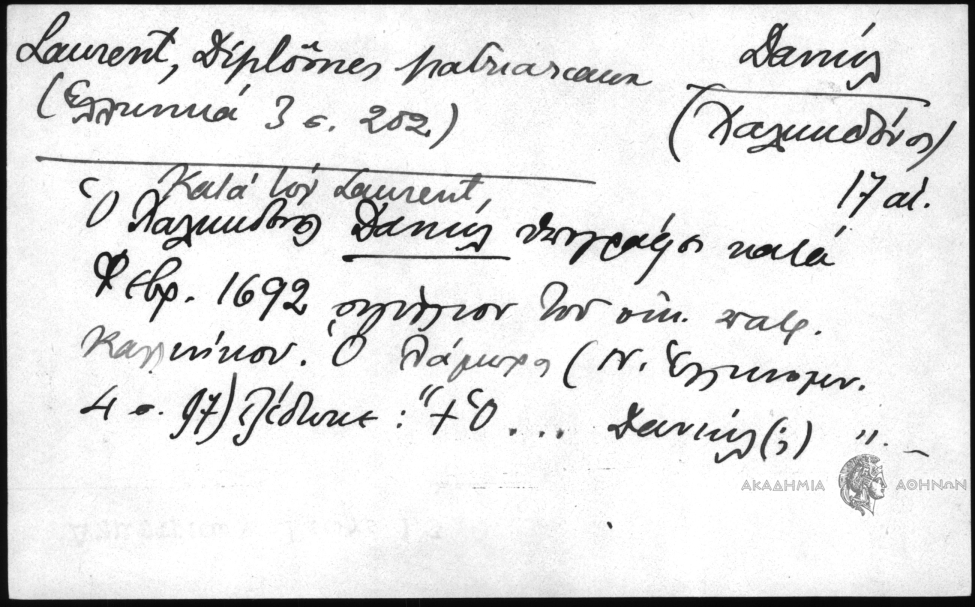 Laurent, Diplômes patriarcaux
(Ελληνικά 3 σ. 202)
Δανιήλ
(Χαλκηδόνος)
17 αἰ.
Κατά τον Laurent,
Ὁ Χαλκηδόνος Δανιήλ ὑπογράφει κατά
Φεβρ. 1692 σιγίλλιον τοῦ οἰκ. πατρ.
Καλλινίκου. Ὁ Λάμπρος (Ν. Ἑλληνομν.
4 σ. 97) ἐξέδωκε : "+ Ὁ ... Δανιήλ (;) ".
ΑΚΑΔΗΜΙΑ ΑΘΗΝΩΝ